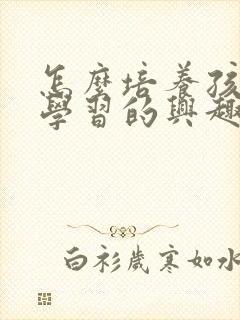 怎麼培養孩
學習的興趣
白衫歲寒如水